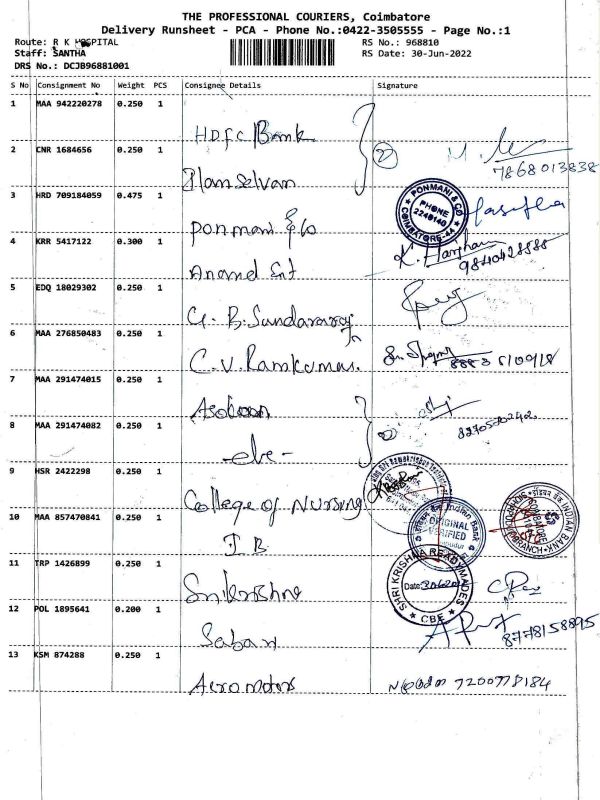 THE PROFESSIONAL COURIERS, Coimbatore
Delivery Runsheet - PCA - Phone No.:0422-3505555 - Page No.:1
Route: R K HOSPITAL
RS No.: 968810
Staff: SANTHA
RS Date: 30-Jun-2022
DRS No.: DCJB96881001
S No Consignment No Weight PCS Consignee Details Signature
1 MAA 942220278 0.250 1 HDFC Bank
2 CNR 1684656 0.250 1 Ilamselvan 2
7868013838
3 HRD 709184059 0.475 1 Ponmani & Co
PONMANI & CO PHONE 2240140 COIMBATORE-44
4 KRR 5417122 0.300 1 Anand Ent
K. Hariharan
9840428588
5 EDQ 18029302 0.250 1 G. B. Sundararaj
6 MAA 276850483 0.250 1 C.V. Ramkumar.
7 MAA 291474015 0.250 1
8 MAA 291474082 0.250 1 2
9 HSR 2422298 0.250 1 College of Nursing
10 MAA 857470841 0.250 1 I B
Indian Bank ORIGINAL VERIFIED
INDIAN BANK BRANCH
11 TRP 1426899 0.250 1 Srikrishna
SHRI KRISHNA READYMADES Date: CBE
12 POL 1895641 0.200 1 Saban
8778158895
13 KSM 874288 0.250 1 Aeromotors
7200778184